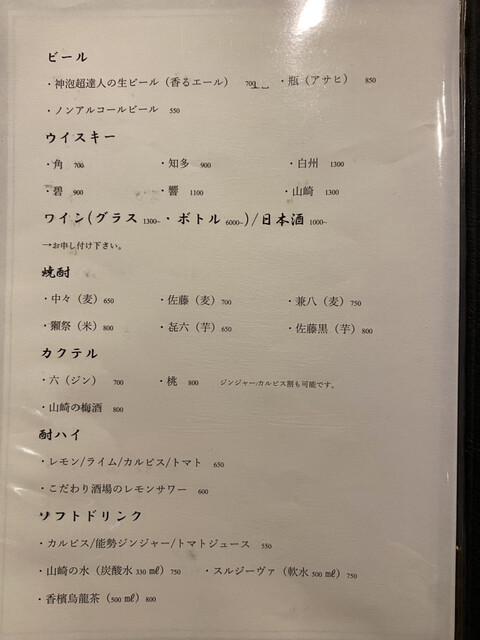 ビール
・神泡超達人の生ビール（香るエール） 700 ・瓶（アサヒ） 850
・ノンアルコールビール 550
ウイスキー
・角 700 ・知多 900 ・白州 1300
・碧 900 ・響 1100 ・山崎 1300
ワイン(グラス 1300~・ボトル 6000~)/日本酒 1000~
→お申し付け下さい。
焼酎
・中々（麦）650 ・佐藤（麦）700 ・兼八（麦）750
・獺祭（米）800 ・㐂六（芋）650 ・佐藤黒（芋）800
カクテル
・六（ジン） 700 ・桃 800 ジンジャー/カルピス割も可能です。
・山崎の梅酒 800
酎ハイ
・レモン/ライム/カルピス/トマト 650
・こだわり酒場のレモンサワー 600
ソフトドリンク
・カルピス/能勢ジンジャー/トマトジュース 550
・山崎の水（炭酸水 330 ㎖）750 ・スルジーヴァ（軟水 500 ㎖）750
・香檳烏龍茶（500 ㎖）800